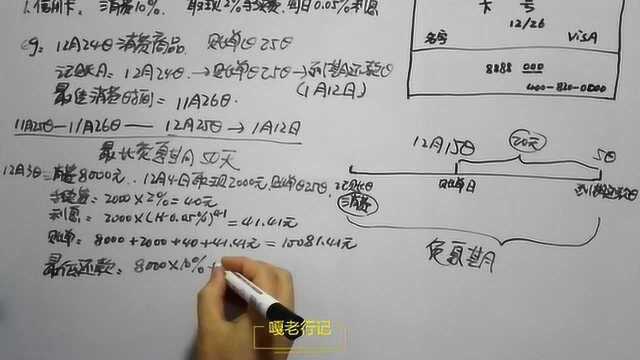 1.信用卡:消费10%. 取现2%手续费,每日0.05%利息
eg: 12月24日消费商品. 账单日25日
记账日:12月24日→账单日25日→到期还款日
(1月12日)
最佳消费时间=11月26日.
11月25日—11月26日——12月25日→1月12日
最长免息期50天
12月3日消费8000元.12月4日取现2000元 账单日25日.
手续费:2000×2%=40元
利息:2000×(1+0.05%)^41=41.41元
账单:8000+2000+40+41.41元=10081.41元
最低还款:8000×10%+
卡 号
12/26
名字 VISA
8888 000
400-820-0000
12月15日 20天 5日
记账日 账单日 到期还款日
消费
免息期
嘎老行记